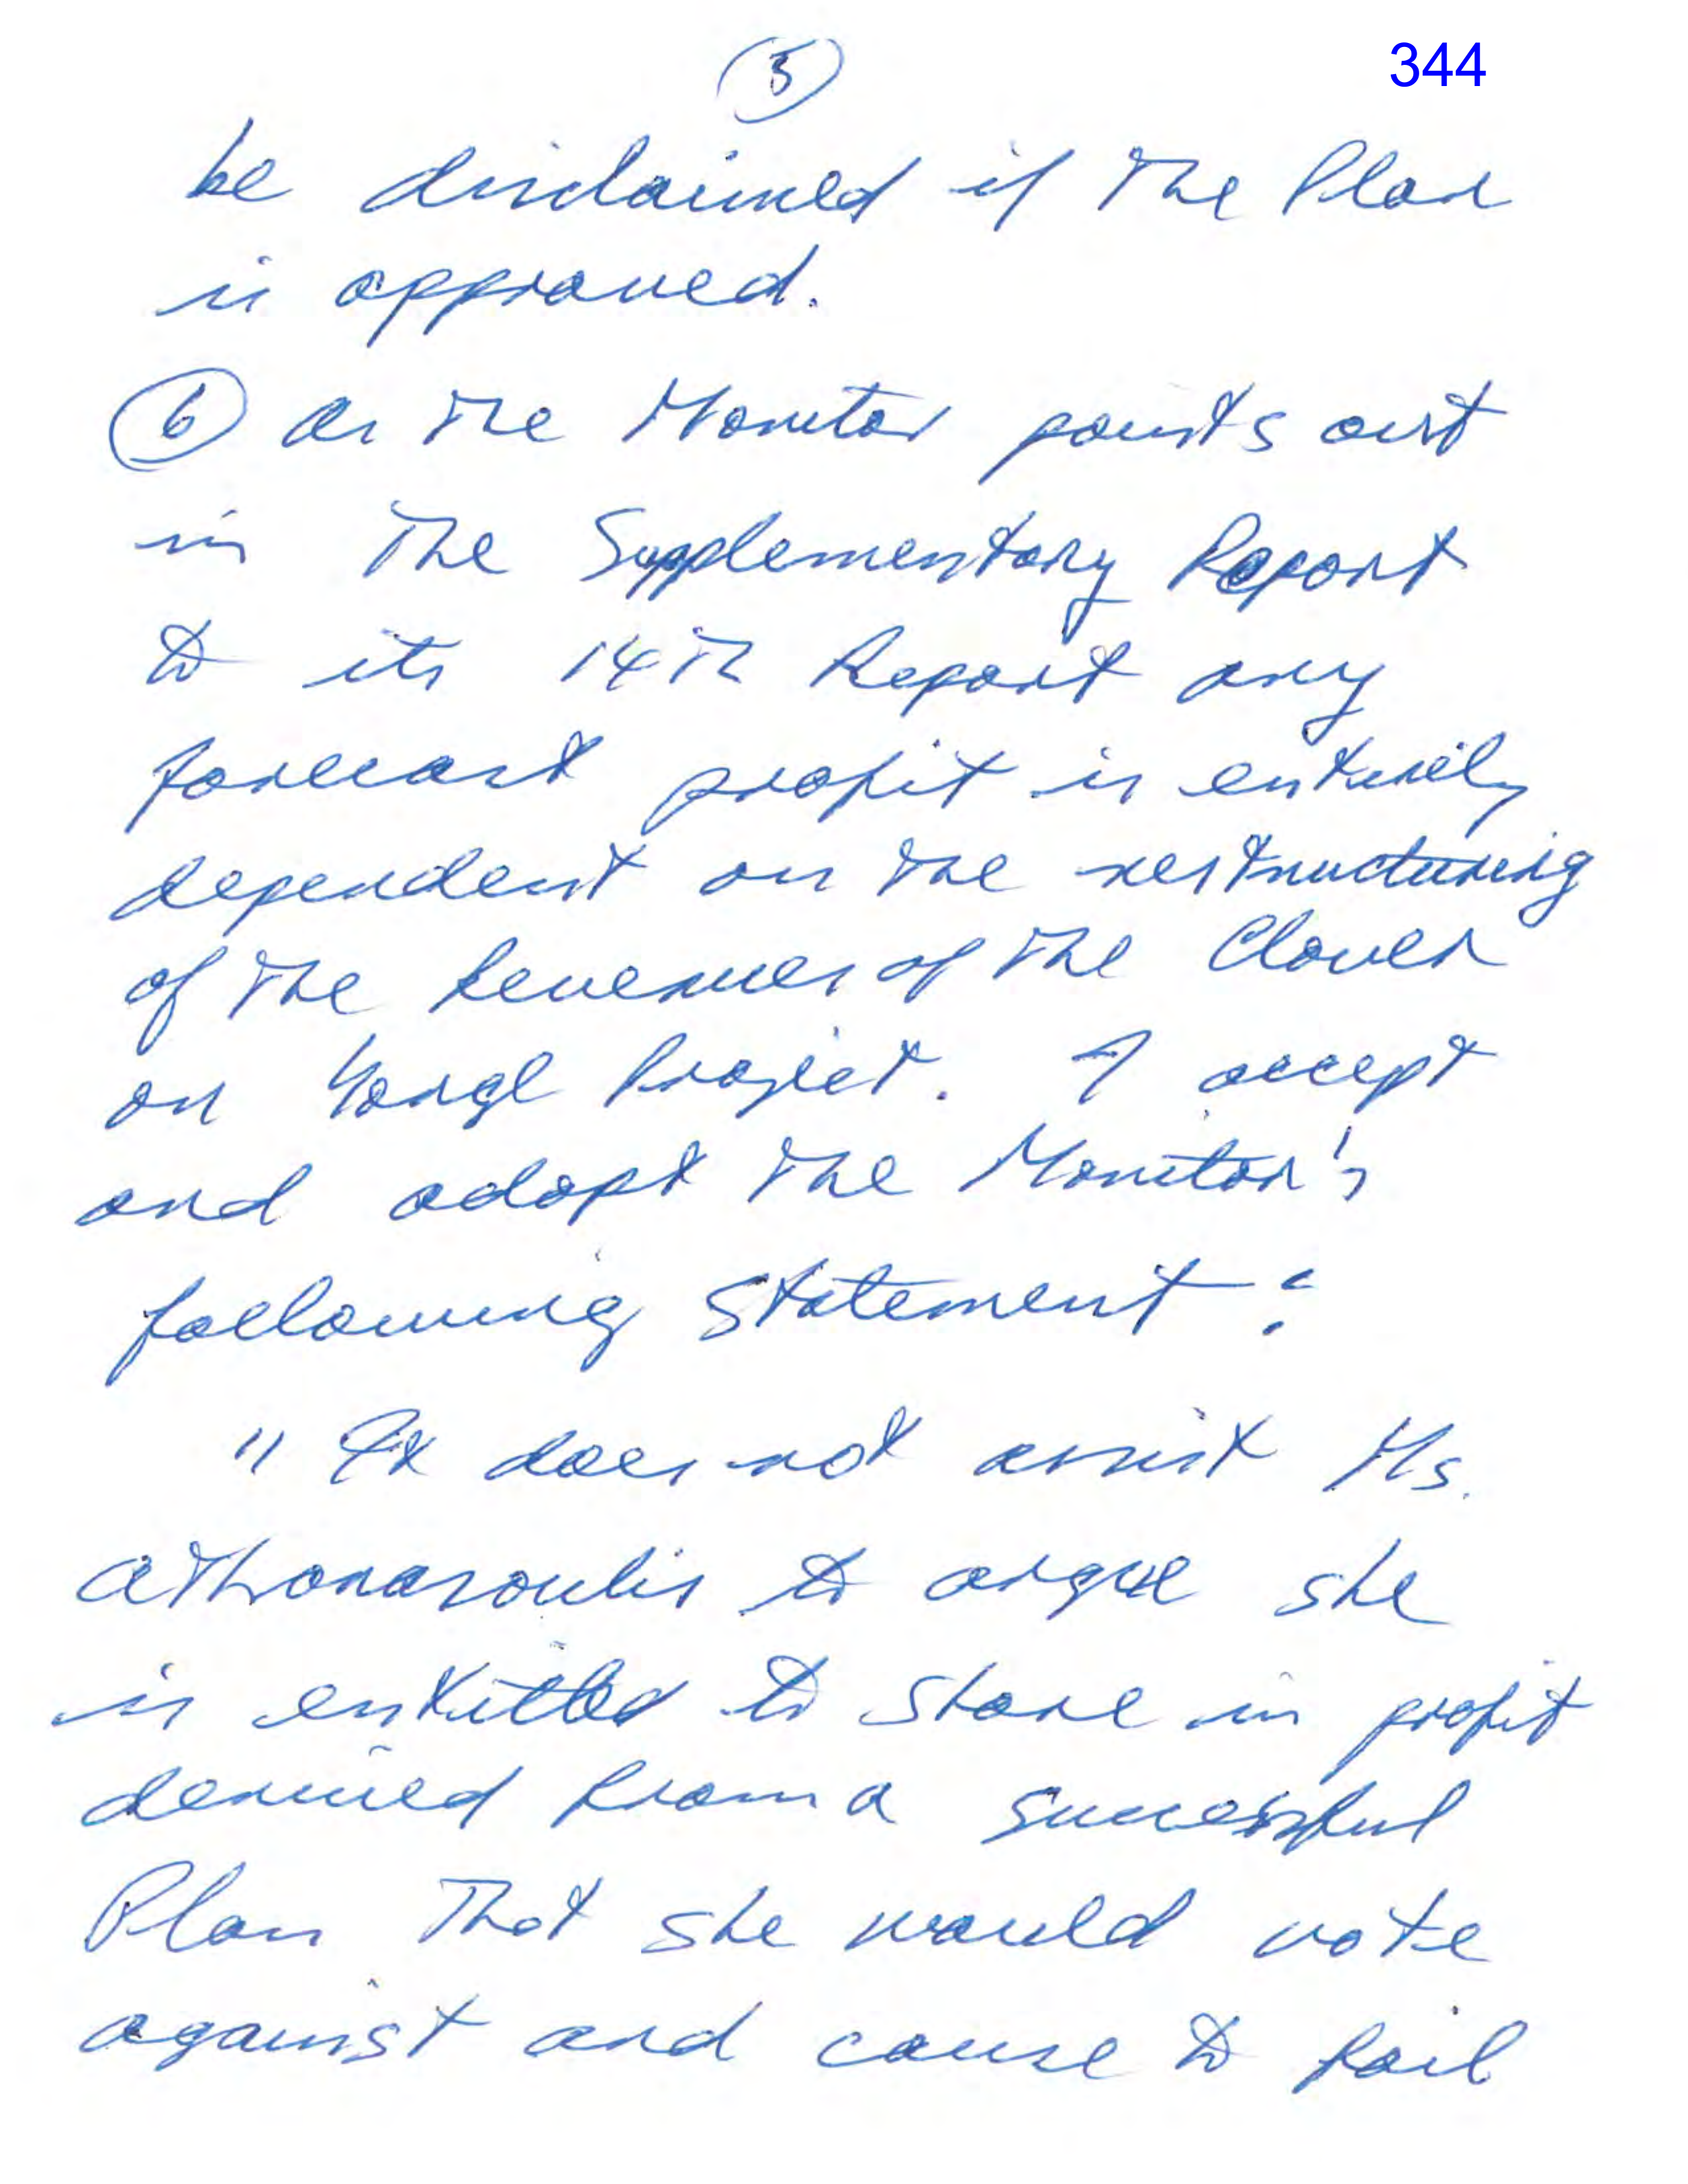 5
344
be disclaimed if the Plan
is approved.
6 As the Monitor points out
in the Supplementary Report
to its 14th Report any
forecast profit is entirely
dependent on the restructuring
of the Revenues of the Clover
on Yonge Project. I accept
and adopt the Monitor's
following statement:
"It does not assist Ms.
Athanasoulis to argue she
is entitled to share in profit
derived from a successful
Plan that she would vote
against and cause to fail